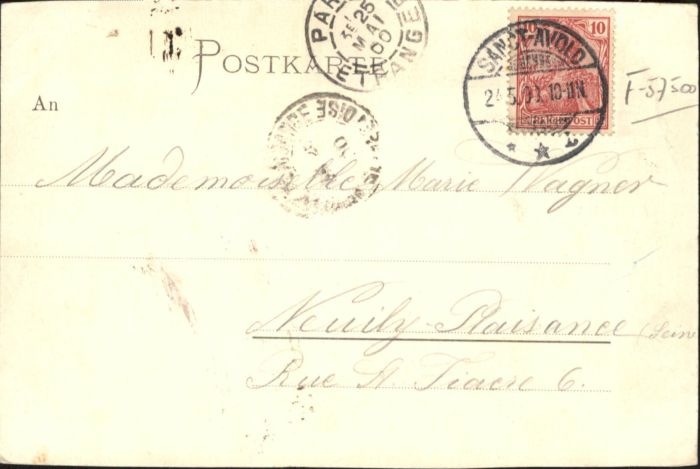 POSTKARTE
PARIS
25
MAI
00
ETRANGER
10
REICHSPOST
SANCT-AVOLD
24.5.00.10-11N
F-57500
An
OISE
Mademoiselle Marie Wagner
Neuily-Plaisance (Seine
Rue St. Fiacre 6.